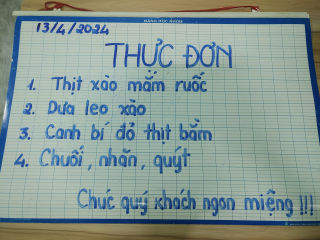 13/4/2024
THỰC ĐƠN
1. Thịt xào mắm ruốc
2. Dưa leo xào
3. Canh bí đỏ thịt bằm
4. Chuối, nhãn, quýt
Chúc quý khách ngon miệng !!!